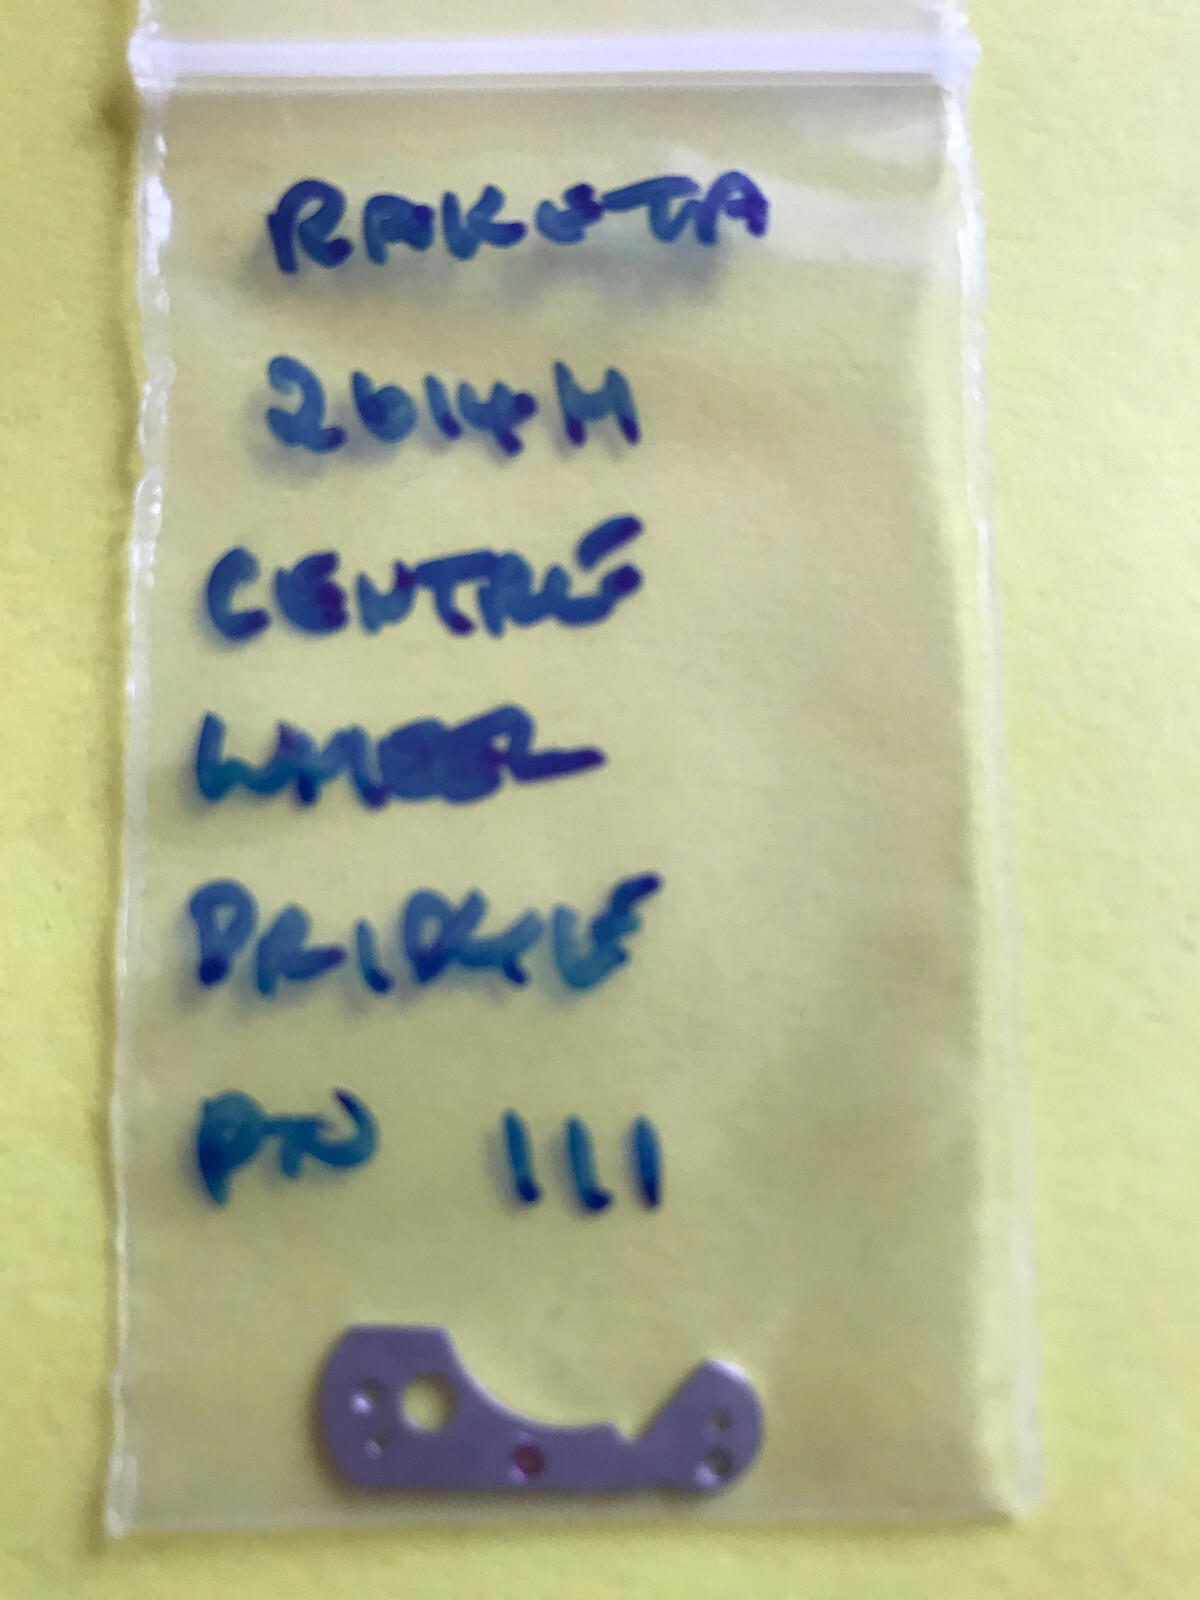 RAKETA
2614H
CENTRE
WHEEL
BRIDGE
PN 111